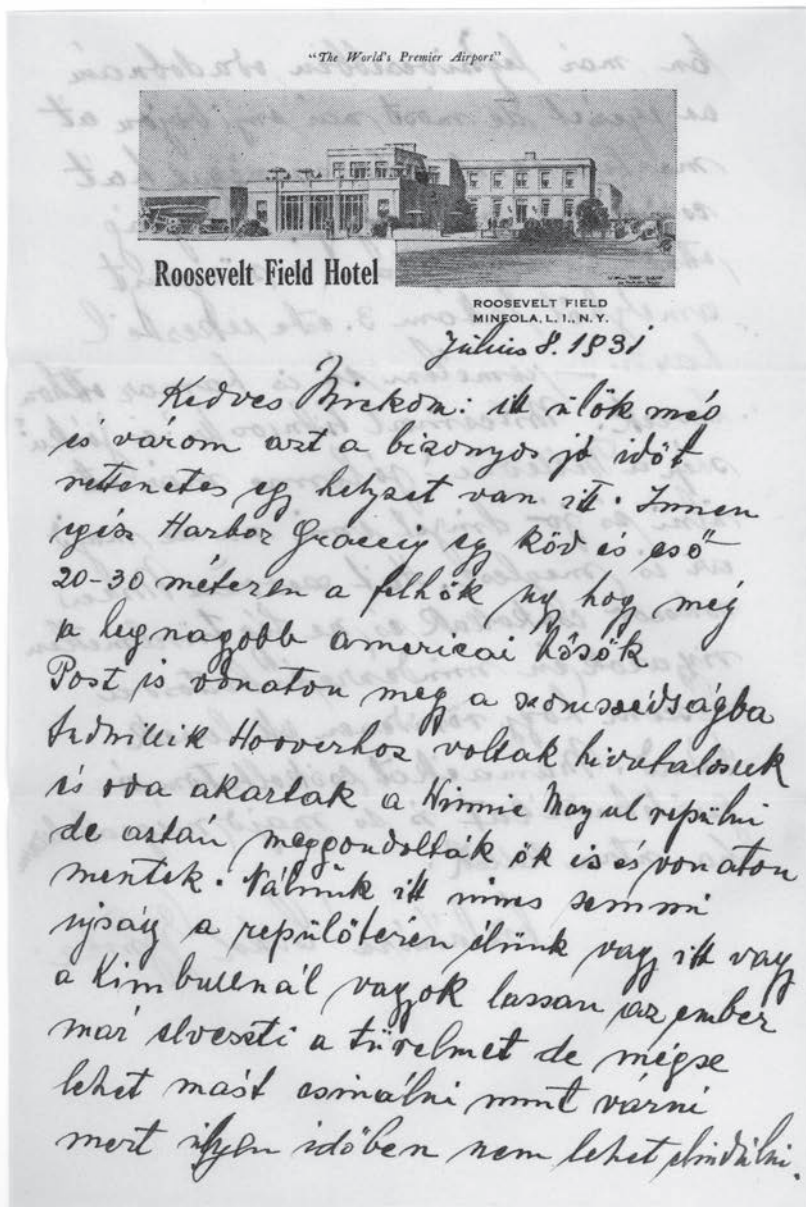 "The World's Premier Airport"
Roosevelt Field Hotel
ROOSEVELT FIELD
MINEOLA, L. I., N. Y.
Július 8. 1931
Kedves : itt ülök még
és várom azt a bizonyos jó időt
rettenetes egy helyzet van itt. Innen
egész Harbor Graceig egy köd és eső
20-30 méteren a felhők ugy hogy még
a legnagobb americai hősök
Post is vonaton meg a szomszédságba
Hooverhoz voltak hivatalosek
és oda akartak a Winnie Mayul repülni
de aztán meggondolták ők is és vonaton
mentek. Nálunk itt nincs semmi
ujság a repülőterén élünk vagy itt vagy
a Kimbullnál vagyok lassan az ember
már elveszti a türelmet de mégse
lehet mást csinálni mint várni
mert ilyen időben nem lehet elindülni.